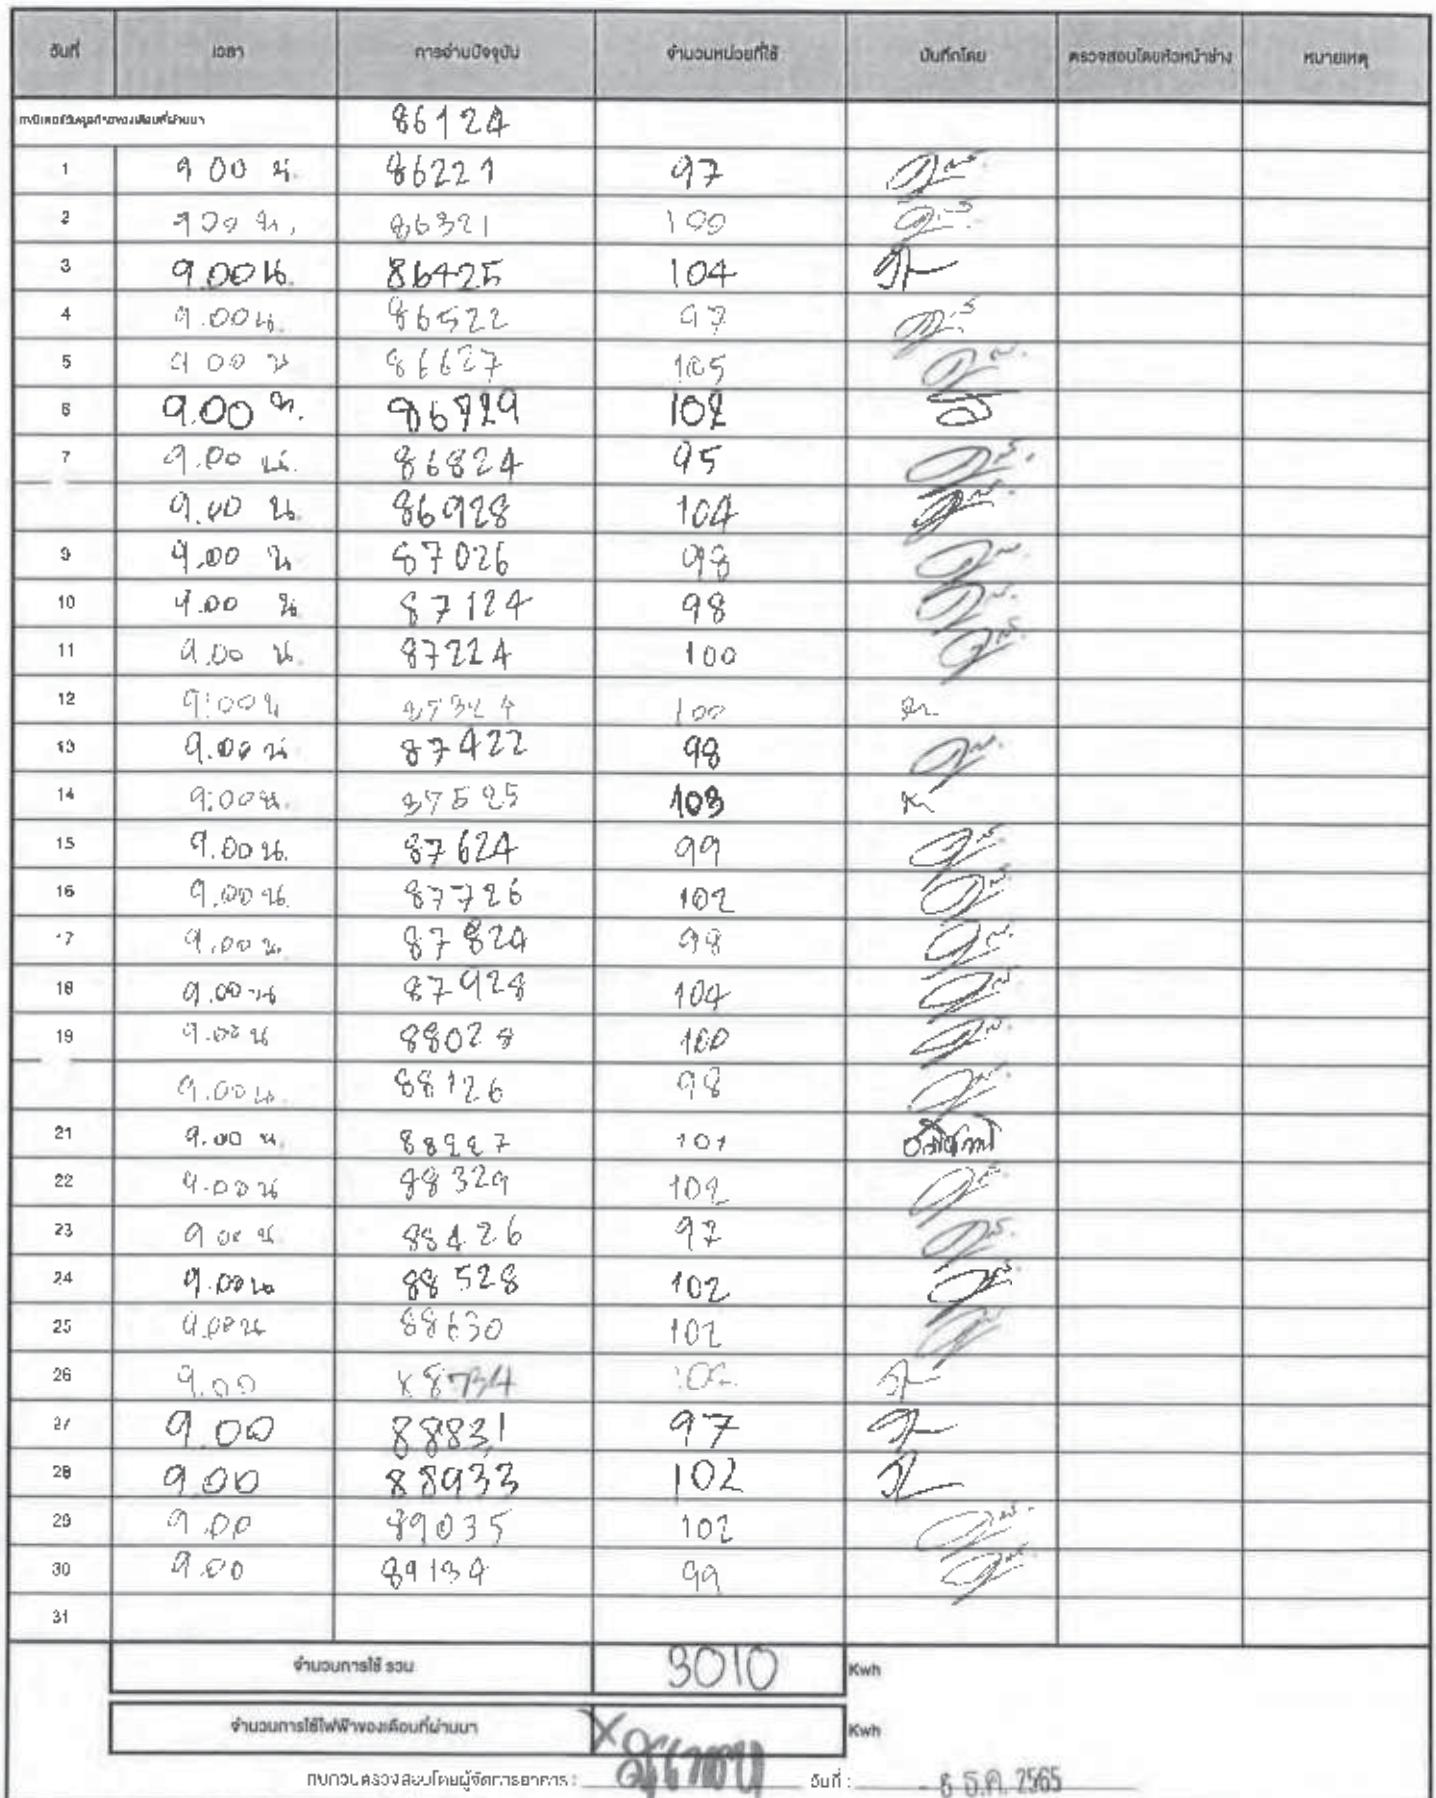 วันที่ เวลา การอ่านปัจจุบัน จำนวนหน่วยที่ใช้ บันทึกโดย ตรวจสอบโดยหัวหน้าช่าง หมายเหตุ
86124
1 9 00 น. 86221 97
2 900 น. 86321 100
3 9.00 น. 86425 104
4 9.00 น. 86522 97
5 9 00 น 86627 105
6 9.00 น. 86729 102
7 9.00 น. 86824 95
9.00 น. 86928 104
9 9.00 น 87026 98
10 9.00 น 87124 98
11 9.00 น. 87224 100
12 9:00 น 87324 100
13 9.00 น 87422 98
14 9:00 น. 87525 103
15 9.00 น. 87624 99
16 9.00 น. 87726 102
17 9.00 น. 87824 98
18 9.00 น 87928 104
19 9.00 น 88028 100
9.00 น. 88126 98
21 9.00 น. 88227 101
22 9.00 น 88329 102
23 9 00 น. 88426 97
24 9.00 น 88528 102
25 9.00 น 88630 102
26 9.00 88734
27 9.00 88831 97
28 9.00 88933 102
29 9.00 89035 102
30 9.00 89134 99
31
จำนวนการใช้ รวม 3010 Kwh
จำนวนการใช้ไฟฟ้าของเดือนที่ผ่านมา Kwh
ทบทวนตรวจสอบโดยผู้จัดการอาคาร : วันที่ : - 8 ธ.ค. 2565